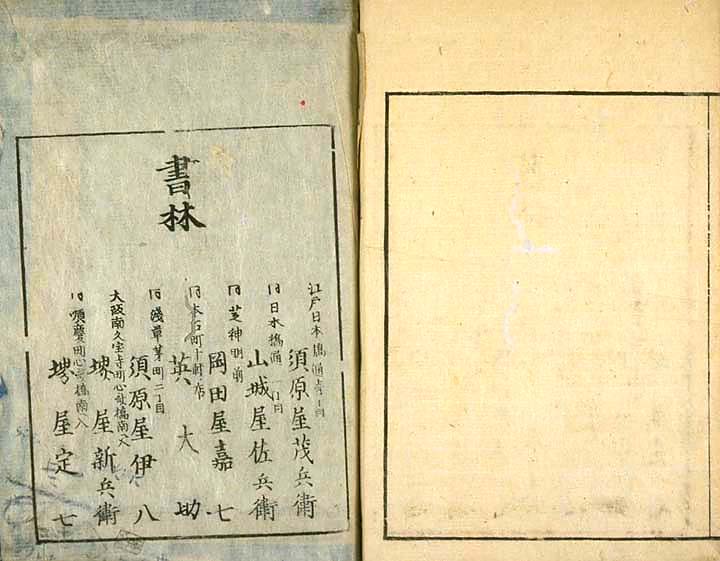 書林
江戸日本橋通壱丁目
須原屋茂兵衛
同日本橋通二丁目
山城屋佐兵衛
同芝神明前
岡田屋嘉七
同本石町十軒店
英大助
同淺草茅町二丁目
須原屋伊八
大阪南久宝寺町心斎橋南入
堺屋新兵衛
同順慶町心斎橋南入
堺屋定七